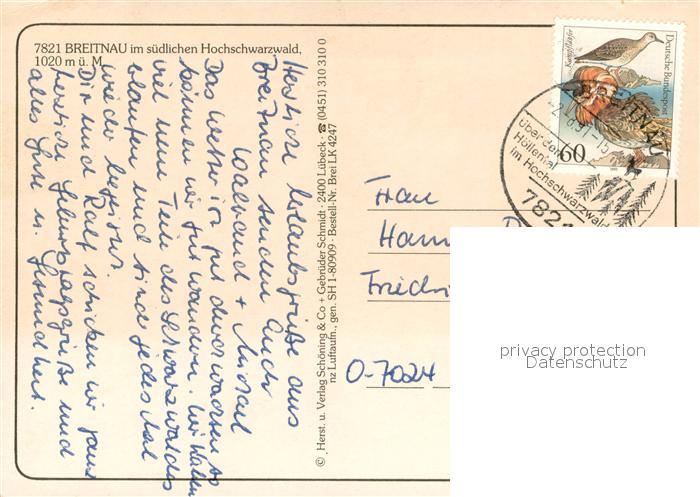 7821 BREITNAU im südlichen Hochschwarzwald,
1020 m ü. M.
Herzliche Urlaubsgrüße aus
Breitnau senden Euch
Waltraud +
Das Wetter ist gut durchwachsen so
können wir gut wandern. Wir haben
viel vom Teil des Schwarzwaldes
und sind jedes Mal
wieder begeistert.
Dir und Ralf schicken wir ganz
herzliche Geburtstagsgrüße und
alles Gute u. Gesundheit.
© Herst. u. Verlag Schöning & Co + Gebrüder Schmidt · 2400 Lübeck · ☎ (0451) 310 310 0
nz Luftaufn., gen. SH 1-80909 · Bestell-Nr. Brei LK 4247
Kampfläufer
Deutsche Bundespost
60
über dem
Höllental
im Hochschwarzwald
7821
Frau
Hann
Friedri
O-7024
privacy protection
Datenschutz